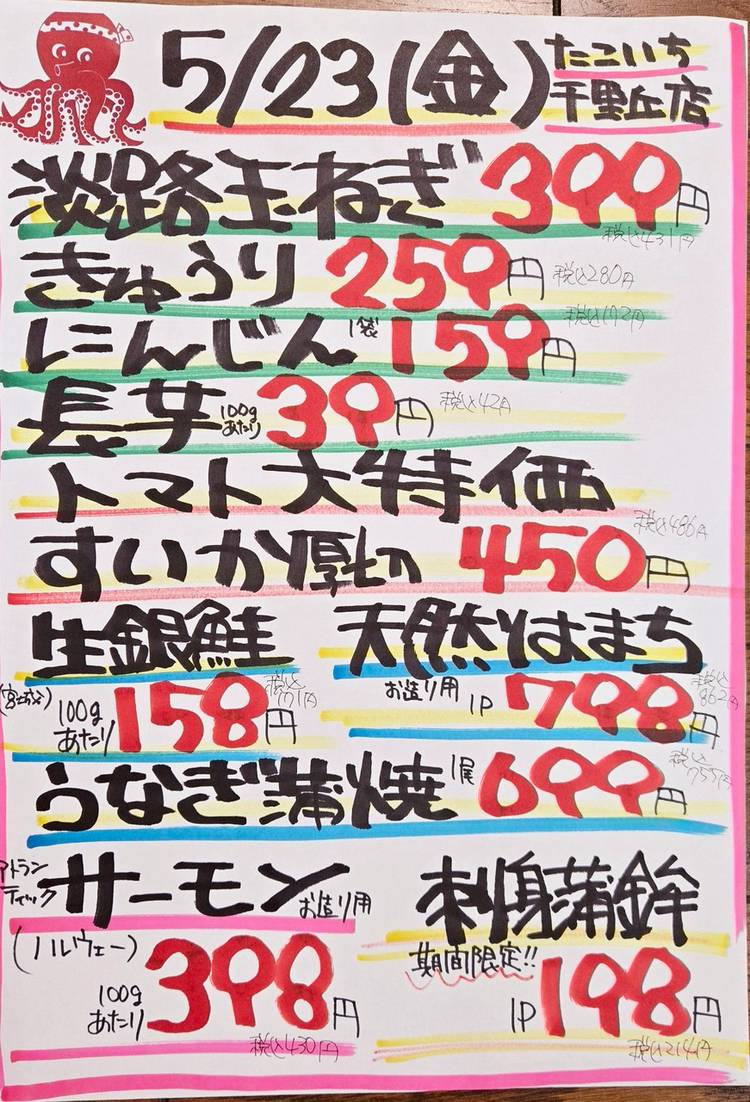 5/23(金)
たこいち
千里丘店
淡路玉ねぎ 399円
税込431円
きゅうり 259円 税込280円
にんじん 1袋 159円 税込172円
長芋 100gあたり 39円 税込42円
トマト大特価
すいか厚切 450円 税込486円
生銀鮭
(宮城)
100g
あたり 158円 税込171円
天然はまち
お造り用
1P 798円 税込862円
うなぎ蒲焼 1尾 699円 税込755円
アトラン
ティック
サーモン お造り用
(ノルウェー)
100g
あたり 398円
税込430円
刺身蒲鉾
期間限定!!
1P 198円
税込214円